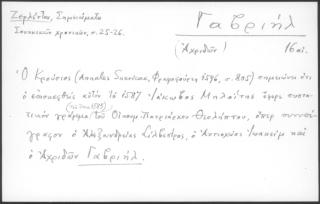 Ζερλέντου, Σημειώματα
Σουηικῶν χρονικῶν, σ. 25-26.
Γαβριήλ
(Ἀχριδῶν)
16 αἰ.
Ὁ Κρούσιος (Annales Suevicae, Φραγκφούρτη 1596, σ. 835) σημειώνει ὅτι
ὁ ἐπισκεφθεὶς αὐτὸν τὸ 1587 Ἰάκωβος Μηλοΐτης ἔφερε συστα-
τικὸν γράμμα τοῦ Οἰκουμ. Πατριάρχου Θεολήπτου, ὅπερ συνυπέ-
γραφον ὁ Ἀλεξανδρείας Σίλβεστρος, ὁ Ἀντιοχείας Ἰωακεὶμ καὶ
ὁ Ἀχριδῶν Γαβριήλ.